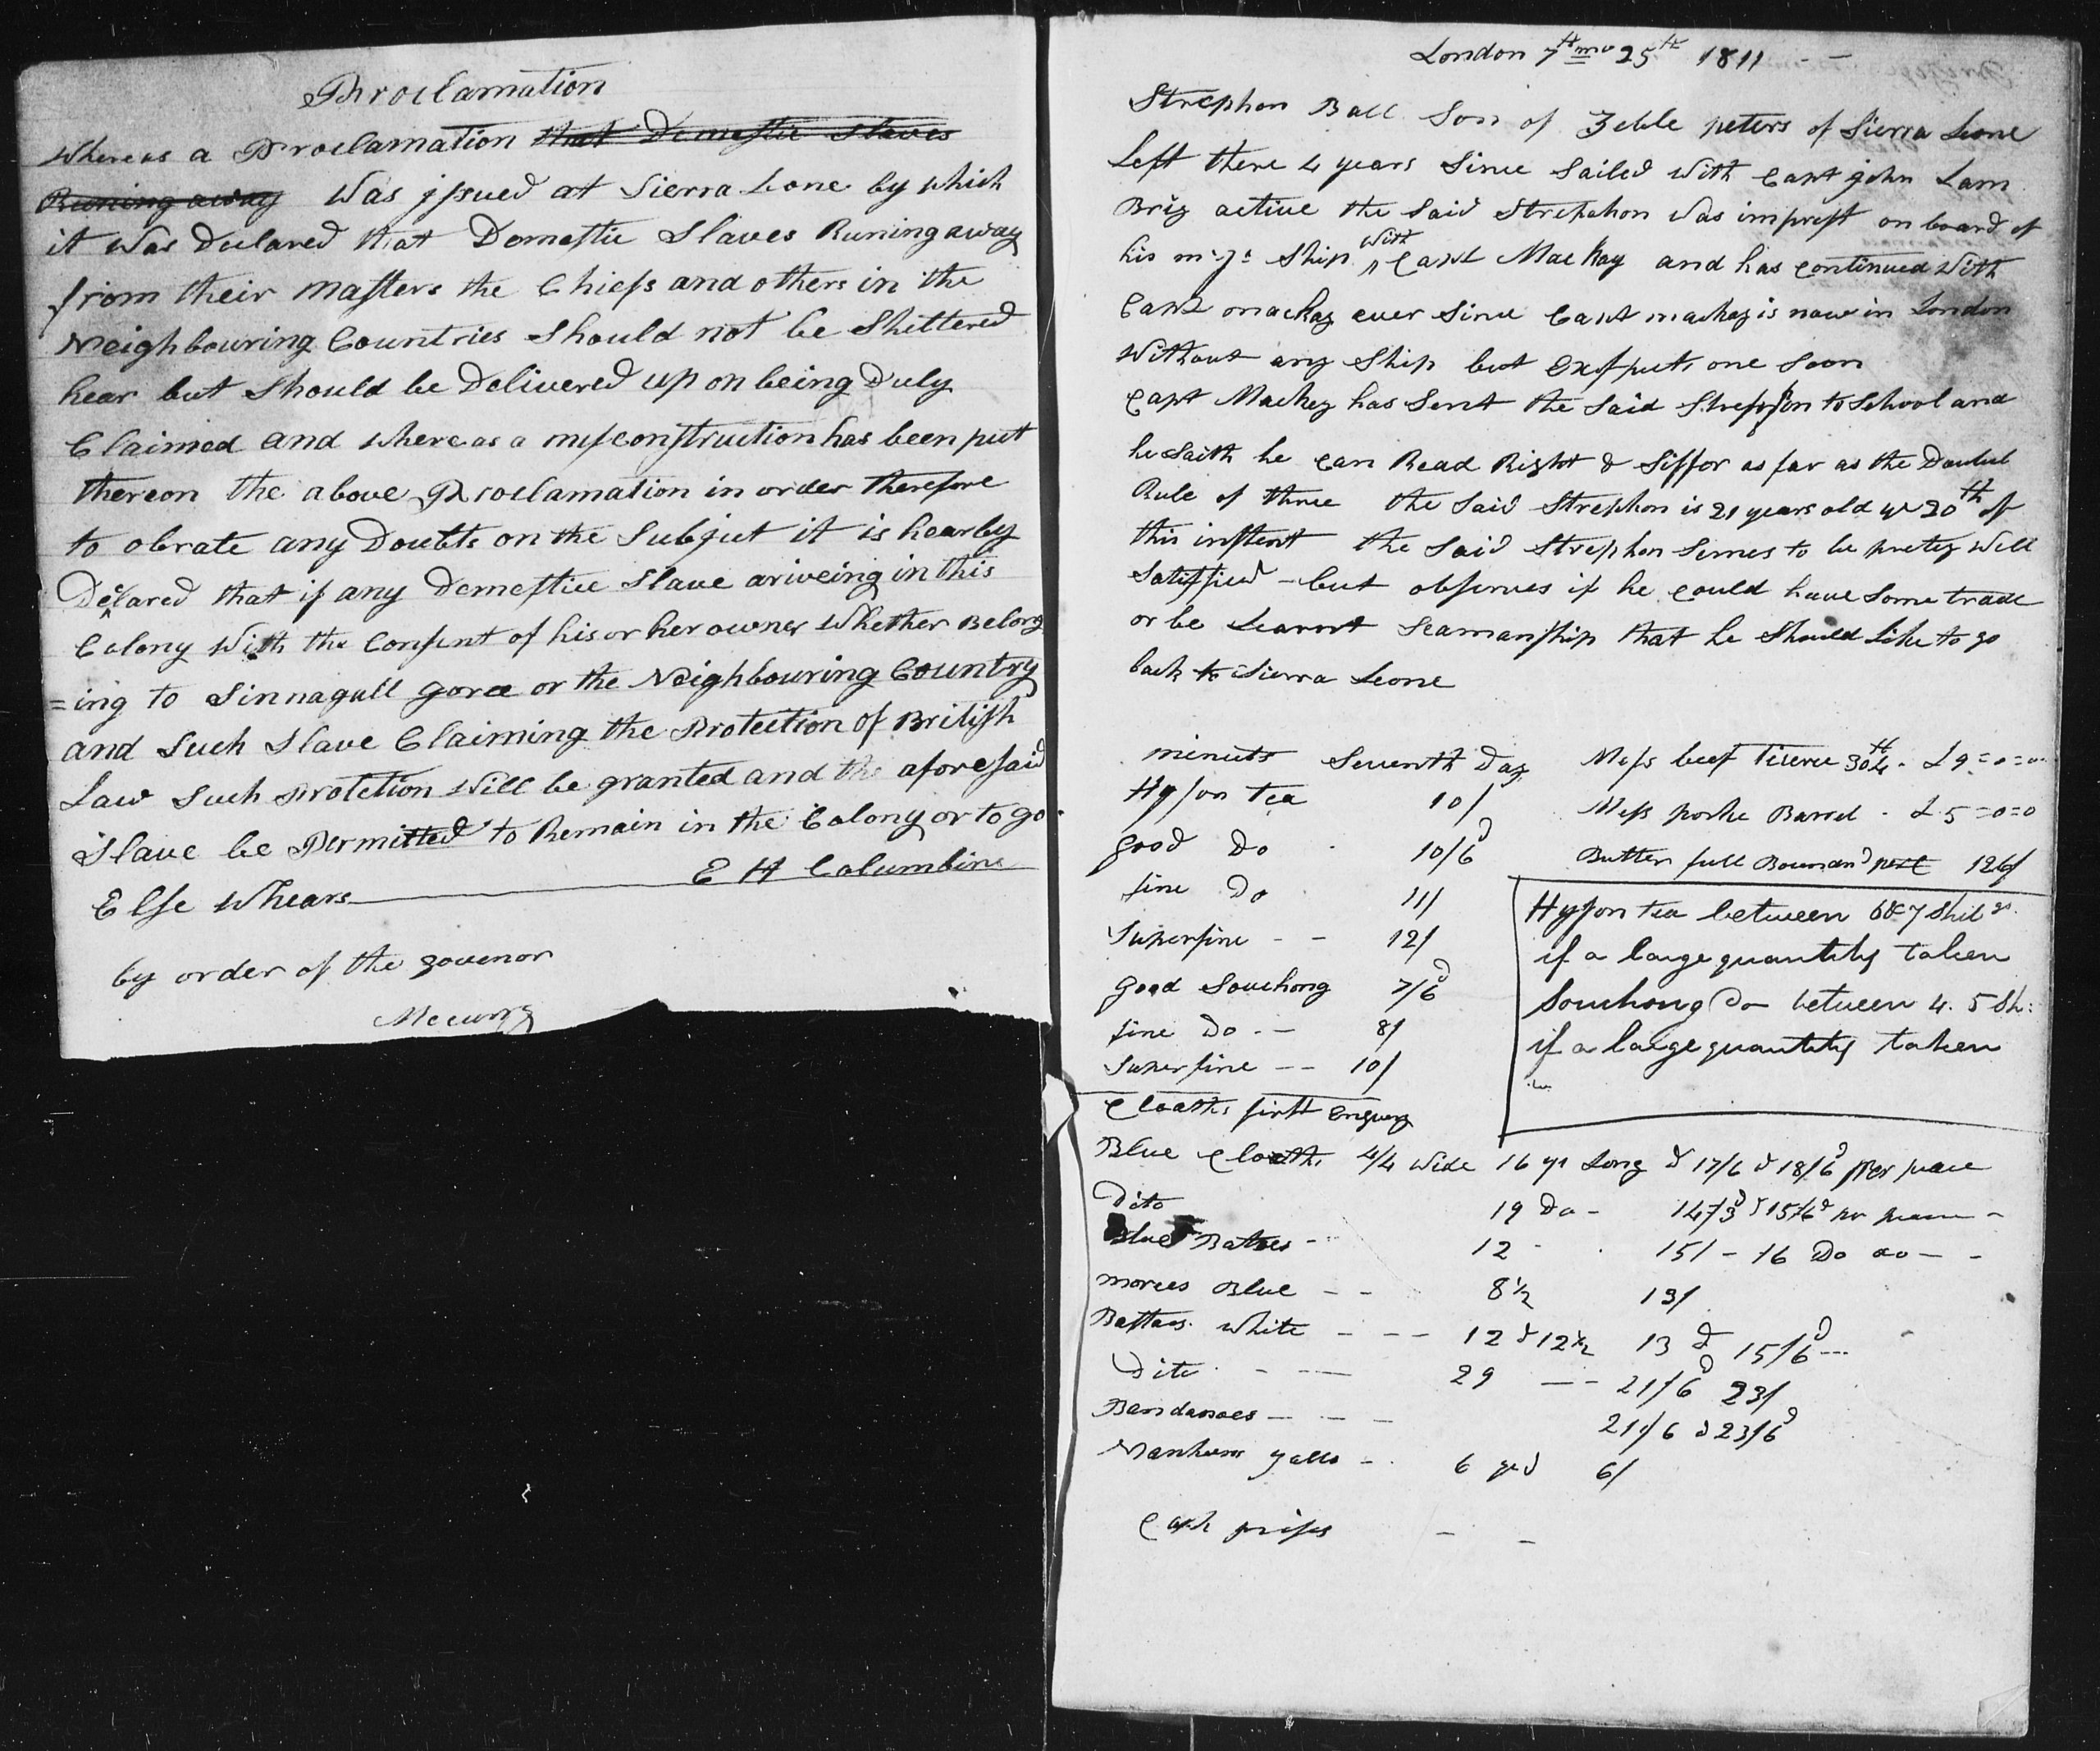 Proclamation
Whereas a Proclamation that Domestic Slaves
Runing away Was issued at Sierra Leone by which
it Was Declared that Domestic Slaves Runing away
from their Masters the Chiefs and others in the
Neighbouring Countries Should not be Sheltered
hear but Should be Delivered up on being Duly
Claimed and Where as a misconstruction has been put
thereon the above Proclamation in order therefore
to obrate any Doubts on the Subject it is hearby
Declared that if any Domestice Slave ariveing in this
Colony With the Consent of his or her owner Whether Belong
=ing to Sinnagall goree or the Neighbouring Country
and Such Slave Claiming the Protection of British
Law Such Protetion Will be granted and the aforesaid
Slave be Permitted to Remain in the Colony or to go
Else Whears E H Columbine
by order of the govenor
London 7th mo 25th 1811
Strephon Ball Son of Zeble peters of Sierra Leone
Left there 4 years Since Sailed With Capt john Lam
Brig active the Said Strephon Was imprest on board of
his mjs Ship With Capt MacKay and has Continued With
Capt mackay ever Since Capt mackay is now in London
Without any Ship but Exspects one Soon
Capt Mackey has Sent the Said Strephon to School and
he Saith he Can Read Right & Siffor as far as the Doubel
Rule of three the Said Strephon is 21 years old ye 20th of
this instent the Said Strephon Semes to be pretey Well
Satisfied - but observes if he Could have Some trade
or be Learnt Seamanship that he Should Like to go
back to Sierra Leone
minuts Seventh Day
Hyson tea 10/
good Do 10/6d
fine Do 11/
Superfine - - 12/
good Souchong 7/6d
fine Do - - 8/
Superfine - - 10/
Mess beef tierce 304 - £9=0=0
Mess porke Barrel - £5=0=0
Butter full 126/
Hyson tea between 6 & 7 Shilgs
if a large quantity taken
Souchong Do between 4. 5 Sh:
if a large quantity taken
Cloaths first Enquery
Blue Cloaths 4/4 Wide 16 yds Long & 17/6 & 18/6d Per peace
Dito 19 Do - 14/3d & 15/6d per peace -
Blue Baftaes - - 12 - 15/ - 16 Do do - -
morees Blue - - 8½ 13/
Baftaes White - - - 12 & 12½ 13 & 15/6d
Dito - - 29 - - 21/6d 23/
Bandanoes - - - 21/6 & 23/6d
Nankeen yallo - 6 yd 6/
Cash prises - -